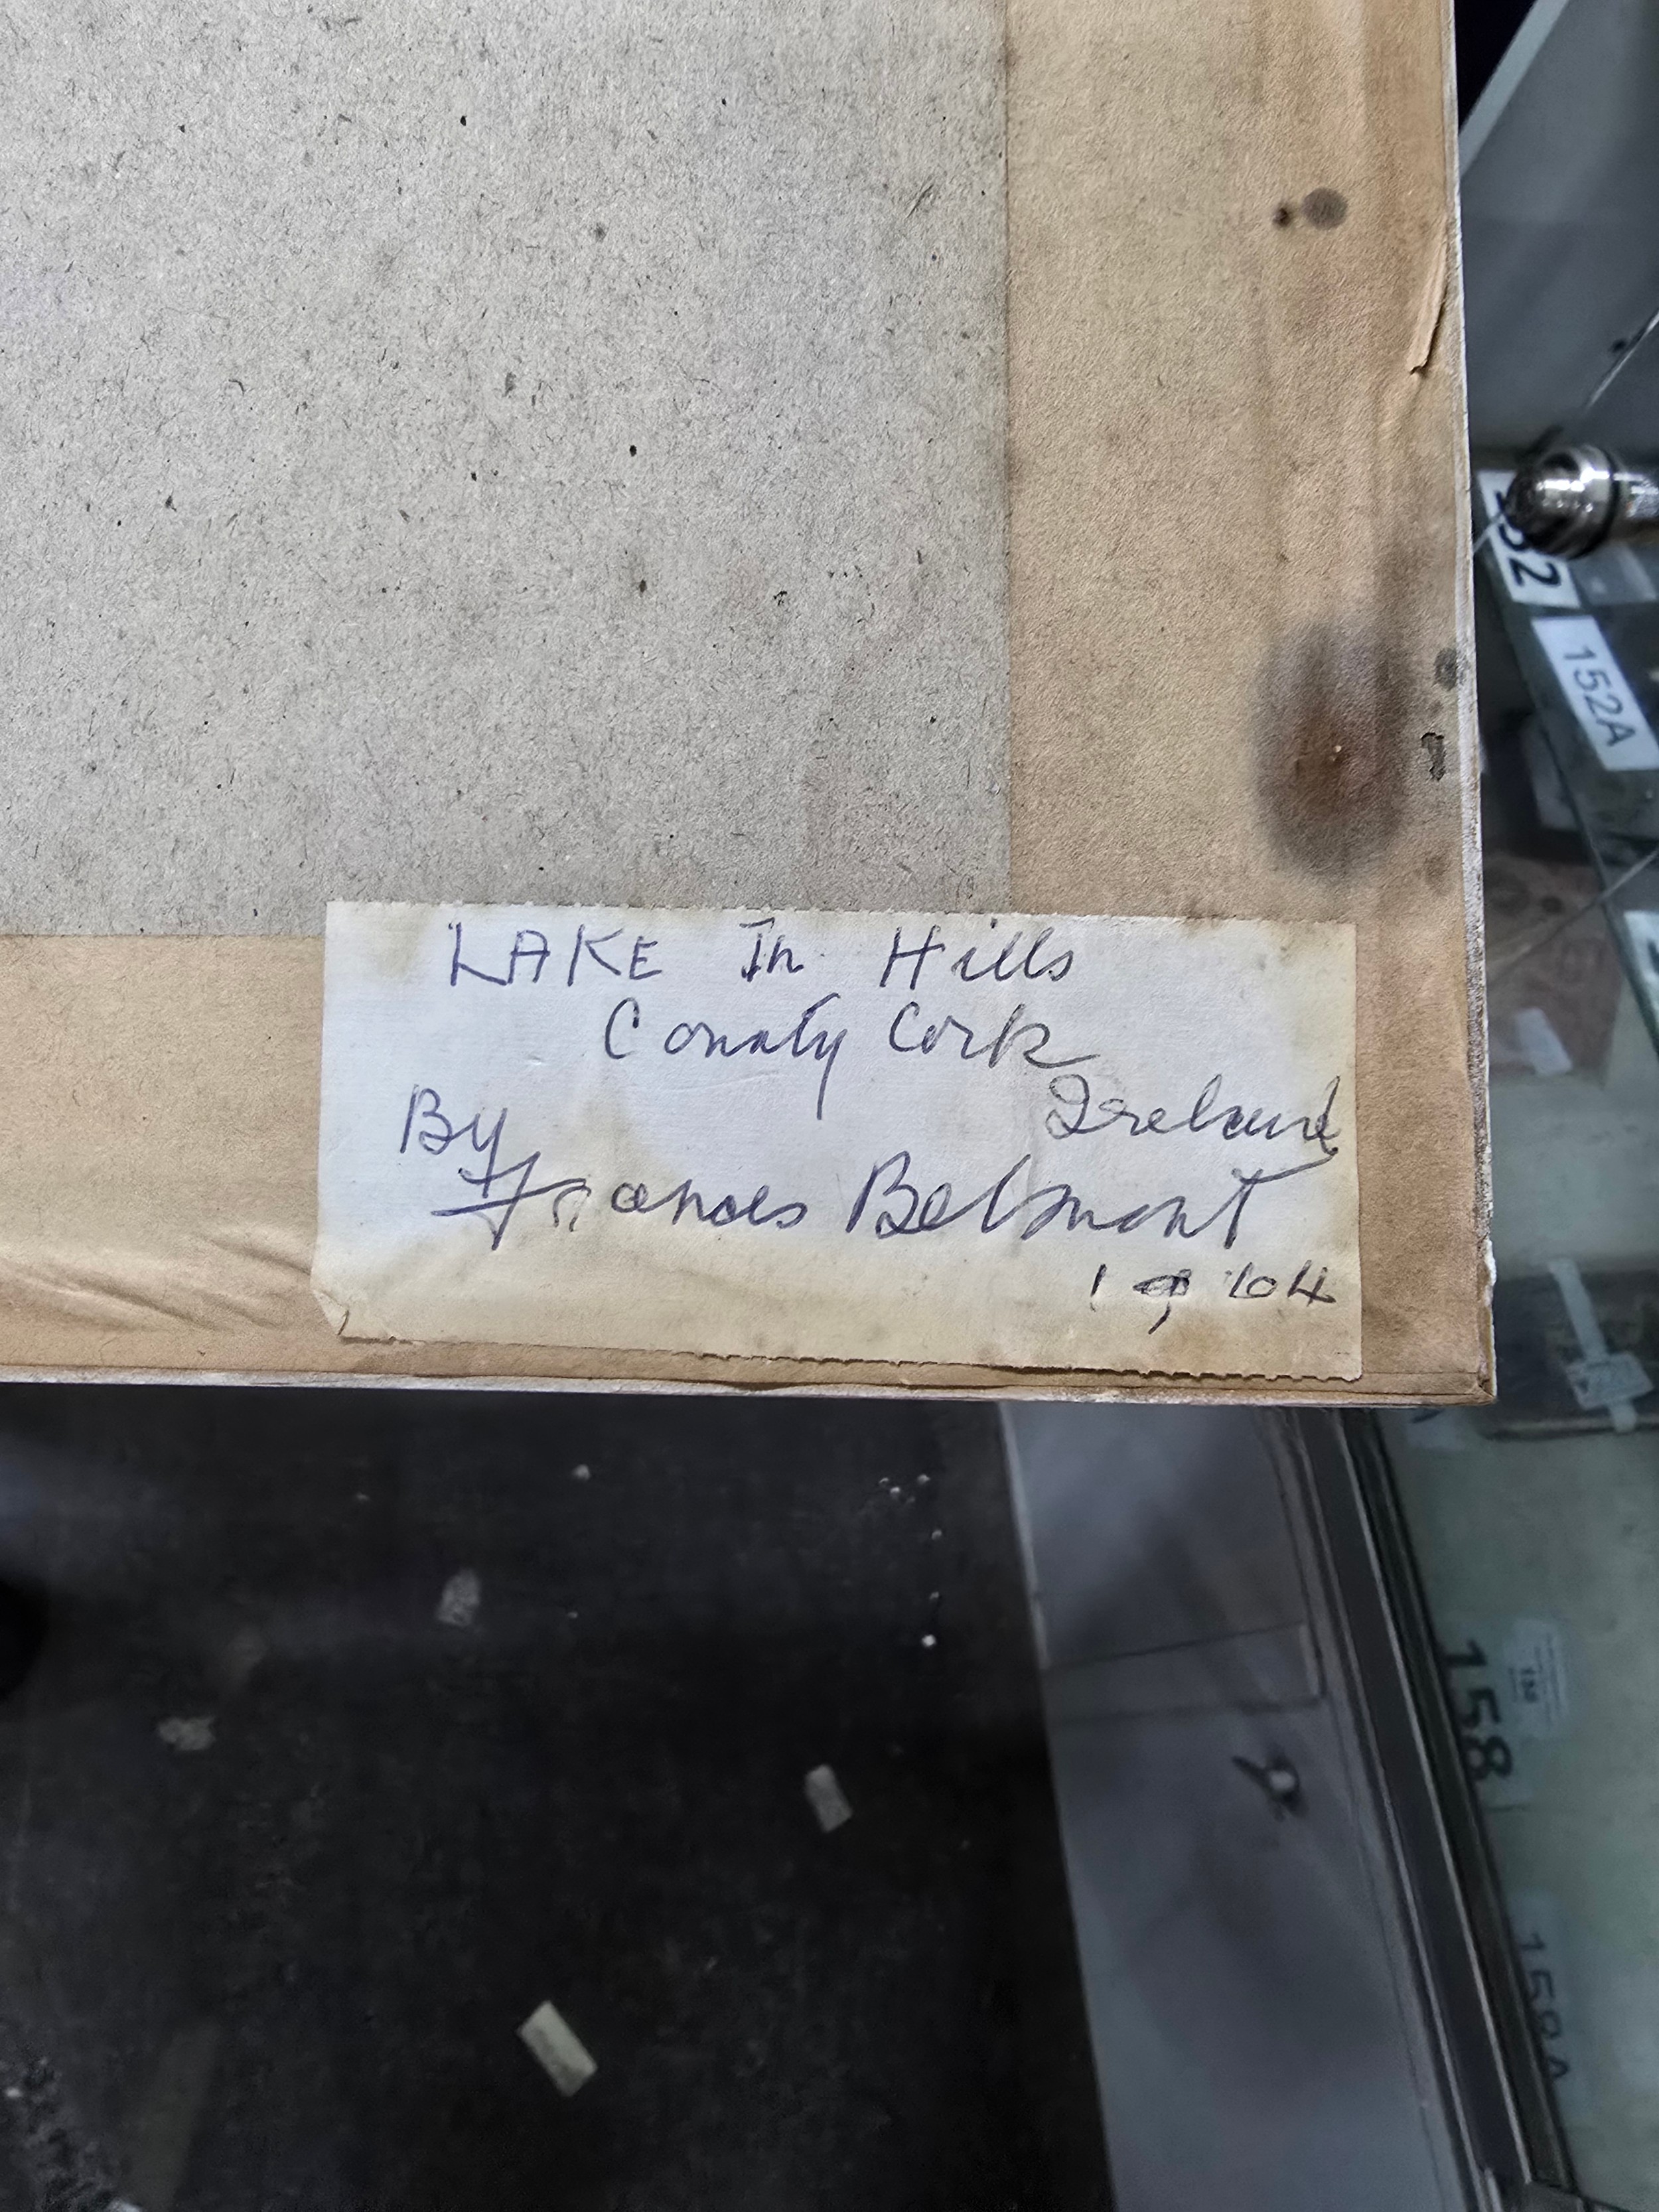 LAKE In Hills
County Cork
Ireland
By
Frances Belmont
152A
158
158A